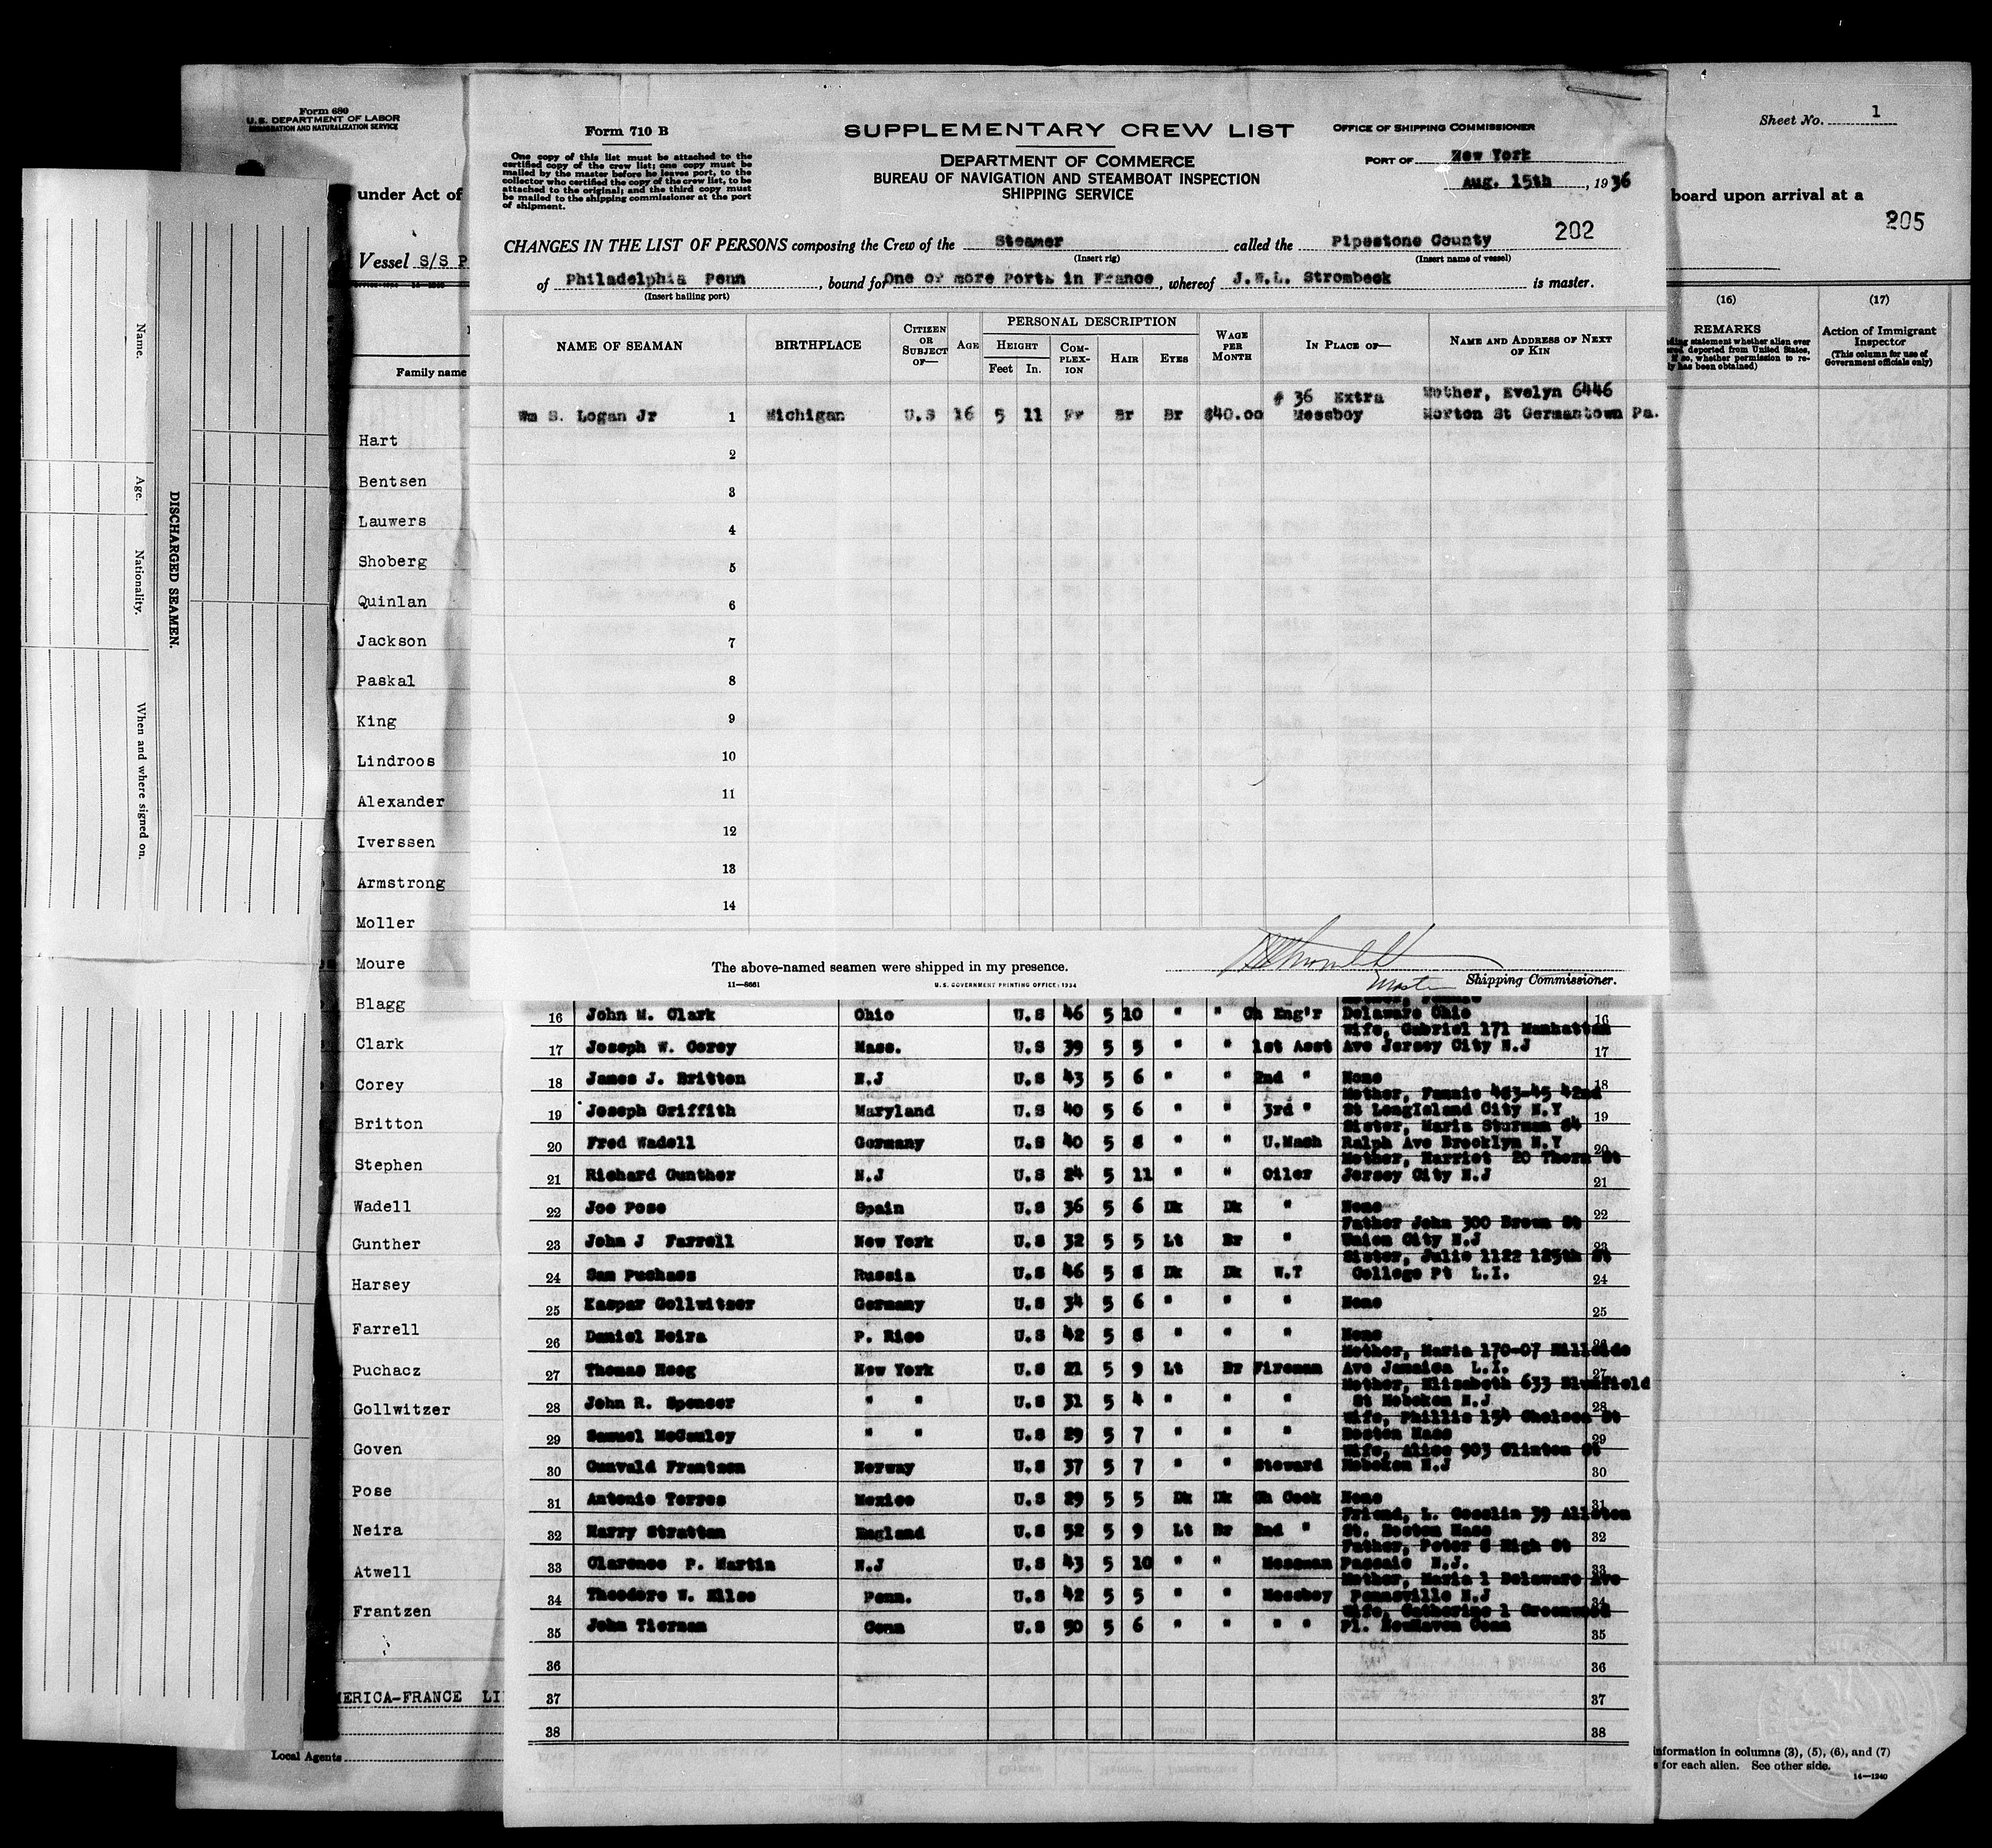 Form 680
U.S. DEPARTMENT OF LABOR
IMMIGRATION AND NATURALIZATION SERVICE
under Act of
Vessel S/S P
Family name
Hart
Bentsen
Lauwers
Shoberg
Quinlan
Jackson
Paskal
King
Lindroos
Alexander
Iverssen
Armstrong
Moller
Moure
Blagg
Clark
Corey
Britton
Stephen
Wadell
Gunther
Harsey
Farrell
Puchacz
Gollwitzer
Goven
Pose
Neira
Atwell
Frantzen
MERICA-FRANCE LI
Local Agents
DISCHARGED SEAMEN.
Name.
Age.
Nationality.
When and where signed on.
Form 710 B
One copy of this list must be attached to the
certified copy of the crew list; one copy must be
mailed by the master before he leaves port, to the
collector who certified the copy of the crew list, to be
attached to the original; and the third copy must
be mailed to the shipping commissioner at the port
of shipment.
SUPPLEMENTARY CREW LIST
DEPARTMENT OF COMMERCE
BUREAU OF NAVIGATION AND STEAMBOAT INSPECTION
SHIPPING SERVICE
OFFICE OF SHIPPING COMMISSIONER
PORT OF New York
Aug. 15th, 1936
202
CHANGES IN THE LIST OF PERSONS composing the Crew of the Steamer called the Pipestone County
(Insert rig) (Insert name of vessel)
of Philadelphia Penn, bound for One or more Ports in France, whereof J.W.L. Strombeck is master.
(Insert hailing port)
NAME OF SEAMAN BIRTHPLACE CITIZEN OR SUBJECT OF— AGE PERSONAL DESCRIPTION HEIGHT Feet In. COMPLEXION HAIR EYES WAGE PER MONTH IN PLACE OF— NAME AND ADDRESS OF NEXT OF KIN
# 36 Extra Mother, Evelyn 6446
Wm S. Logan Jr 1 Michigan U.S 16 5 11 Fr Br Br $40.00 Messboy Morton St Germantown Pa.
2
3
4
5
6
7
8
9
10
11
12
13
14
The above-named seamen were shipped in my presence.
Master Shipping Commissioner.
11—8661 U.S. GOVERNMENT PRINTING OFFICE: 1934
16 John M. Clark Ohio U.S 46 5 10 " " Ch Eng'r Delaware Ohio 16
Wife, Gabriel 171 Manhattan
17 Joseph W. Corey Mass. U.S 39 5 5 " " 1st Asst Ave Jersey City N.J 17
18 James J. Britton N.J U.S 43 5 6 " " 2nd " None 18
Mother, Fannie 463-45 42nd
19 Joseph Griffith Maryland U.S 40 5 6 " " 3rd " St LongIsland City N.Y 19
Sister, Maria Sturman 84
20 Fred Wadell Germany U.S 40 5 8 " " U.Mach Ralph Ave Brooklyn N.Y 20
Mother, Harriet 20 Thorn St
21 Richard Gunther N.J U.S 24 5 11 " " Oiler Jersey City N.J 21
22 Joe Pose Spain U.S 36 5 6 Dk Dk " None 22
Father John 300 Brown St
23 John J Farrell New York U.S 32 5 5 Lt Br " Union City N.J 23
Sister, Julie 1122 125th St
24 Sam Puchacs Russia U.S 46 5 8 Dk Dk W.T College Pt L.I. 24
25 Kaspar Gollwitzer Germany U.S 34 5 6 " " " None 25
26 Daniel Neira P. Rico U.S 42 5 8 " " " None 26
Mother, Maria 170-07 Hillside
27 Thomas Hoeg New York U.S 21 5 9 Lt Br Fireman Ave Jamaica L.I. 27
Mother, Elizabeth 633
28 John R. Spencer " " U.S 31 5 4 " " " St Hoboken N.J 28
Wife, Phillis 154 Chelsea St
29 Samuel McCauley " " U.S 29 5 7 " " " Boston Mass 29
Wife, Alice 903 Clinton St
30 Gunvald Frantzen Norway U.S 37 5 7 " " Steward Hoboken N.J 30
31 Antonio Torres Mexico U.S 29 5 5 Dk Dk Ch Cook None 31
Friend, L. Gosslin 39 Allston
32 Harry Stratton England U.S 52 5 9 Lt Br 2nd " St. Boston Mass 32
Father, Peter 8 High St
33 Clarence P. Martin N.J U.S 43 5 10 " " Messman Passaic N.J. 33
Mother, Maria 1 Delaware Ave
34 Theodore W. Ellse Penn. U.S 42 5 5 " " Messboy Pennsville N.J 34
Wife, Catherine 1 Greenwood
35 John Tiernan Conn U.S 50 5 6 " " " " Pl. NewHaven Conn 35
36 36
37 37
38 38
Sheet No. 1
board upon arrival at a
205
(16) (17)
REMARKS
Action of Immigrant
Inspector
(This column for use of
Government officials only)
information in columns (3), (5), (6), and (7)
for each alien. See other side.
14—1240